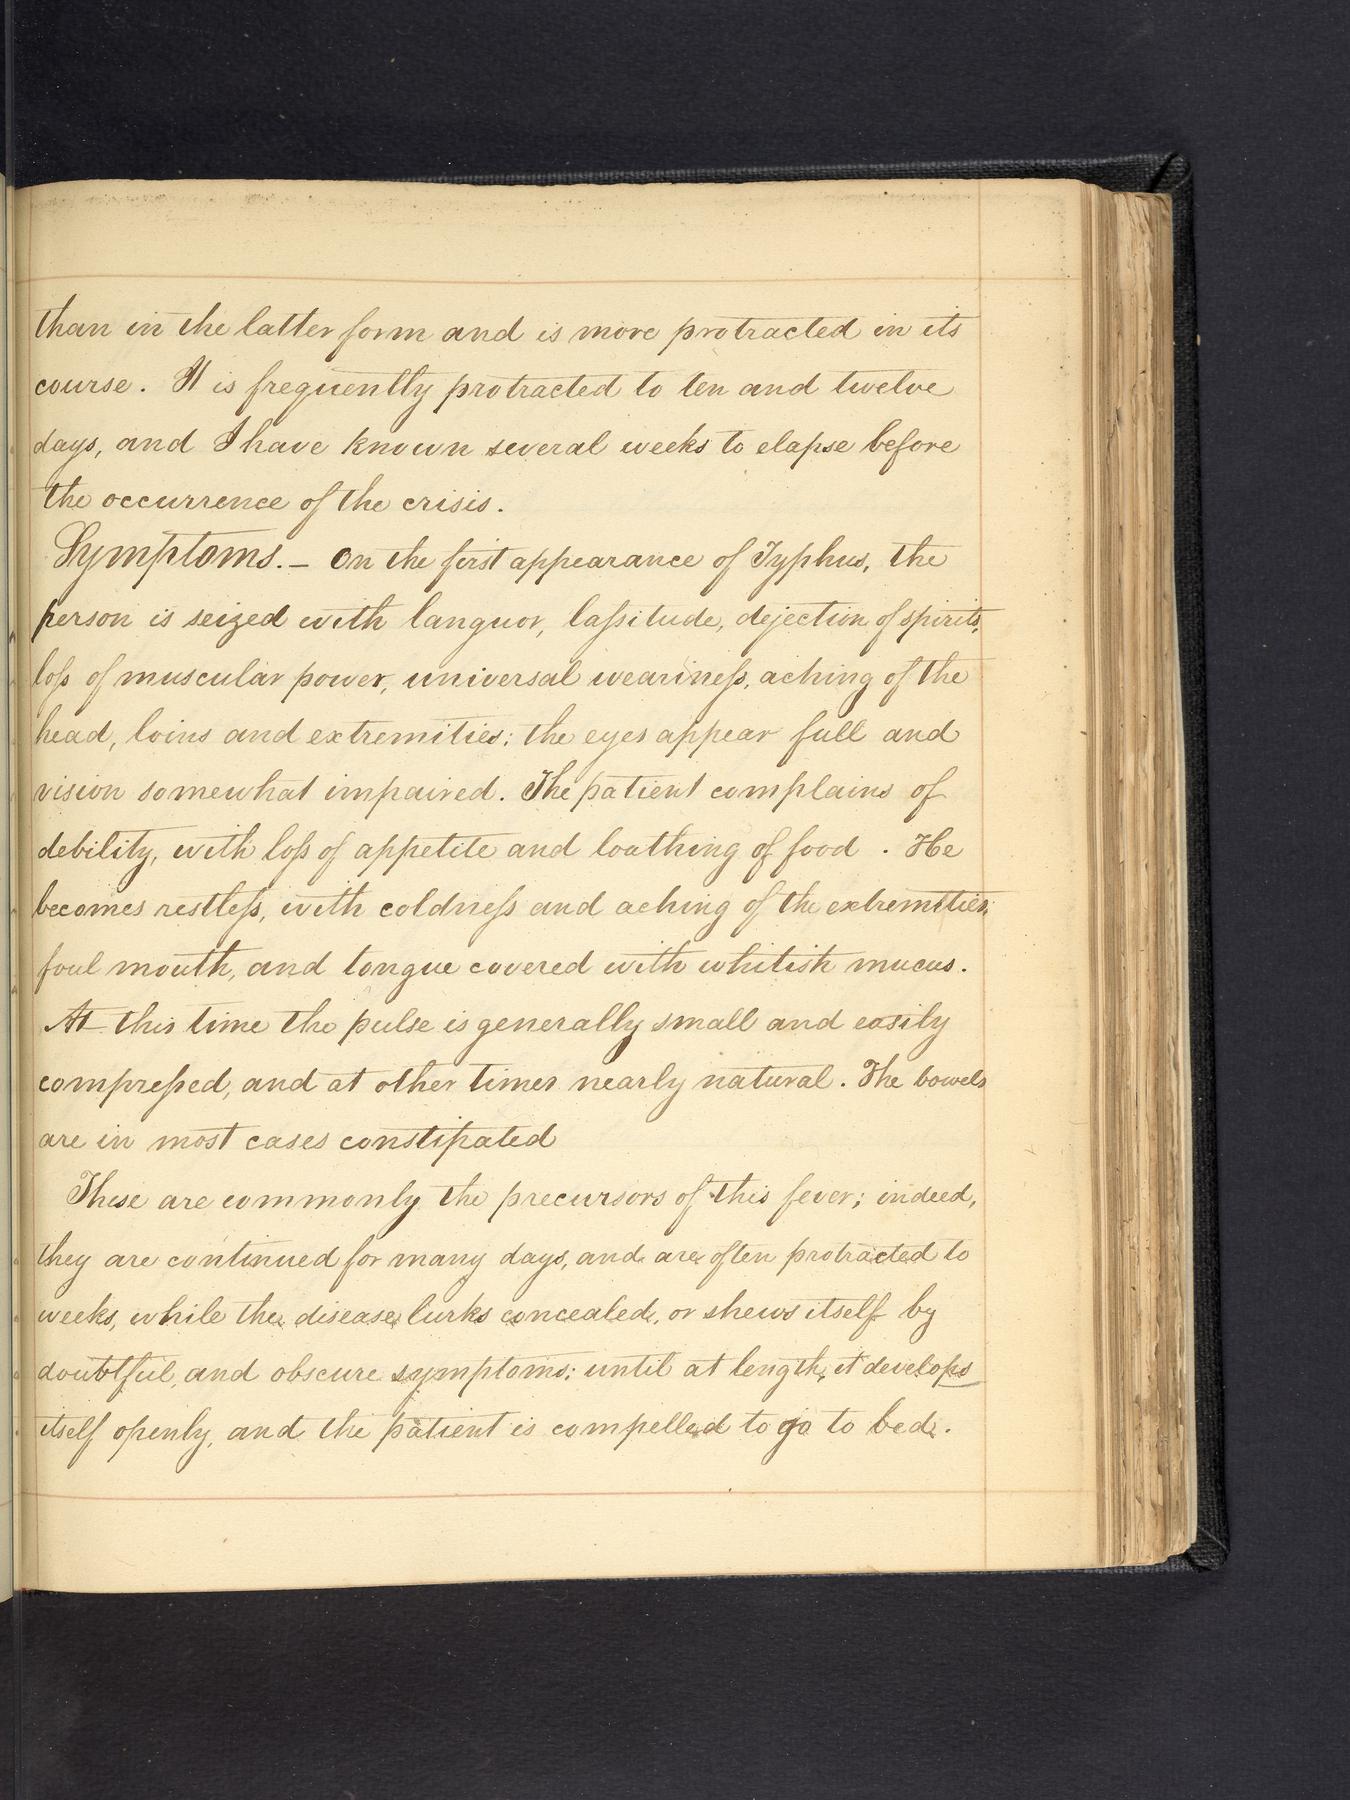 than in the latter form and is more protracted in its
course. It is frequently protracted to ten and twelve
days, and I have known several weeks to elapse before
the occurrence of the crisis.
Symptoms. — On the first appearance of Typhus, the
person is seized with languor, laſsitude, dejection of spirits,
loſs of muscular power, universal wearineſs, aching of the
head, loins and extremities; the eyes appear full and
vision somewhat impaired. The patient complains of
debility, with loſs of appetite and loathing of food . He
becomes restleſs, with coldneſs and aching of the extremities,
foul mouth, and tongue covered with whitish mucus.
At this time the pulse is generally small and easily
compreſsed, and at other times nearly natural. The bowels
are in most cases constipated
These are commonly the precursors of this fever; indeed,
they are continued for many days, and are often protracted to
weeks, while the disease lurks concealed, or shews itself by
doubtful, and obscure symptoms; until at length, it develops
itself openly, and the patient is compelled to go to bed.